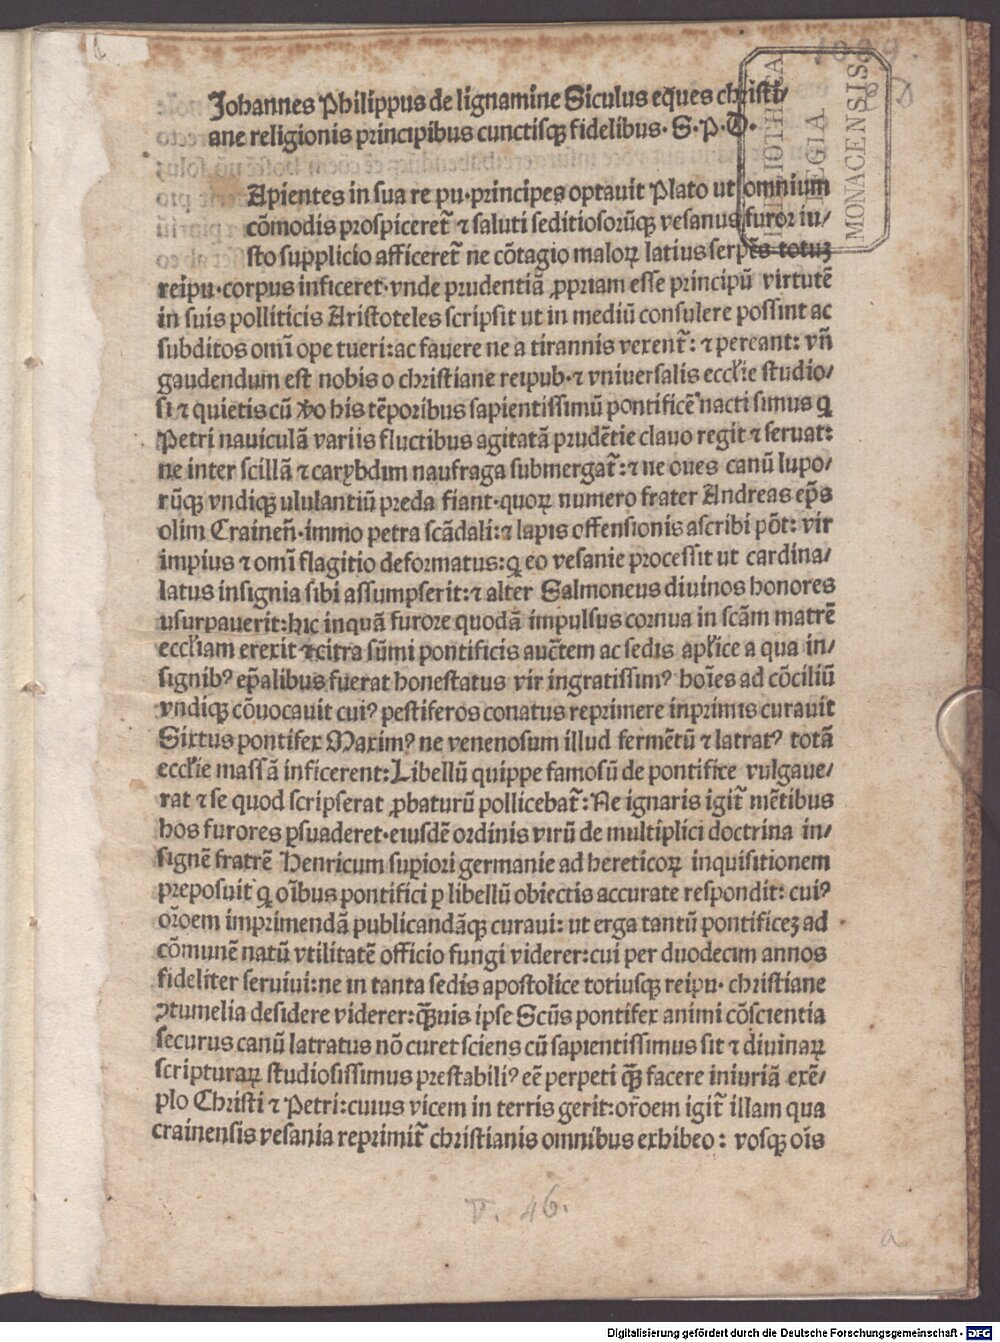 Johannes Philippus de lignamine Siculus eques christi/
ane religionis principibus cunctisqꝫ fidelibus. S. P. D.
Apientes in sua re pu. principes optauit Plato ut omnium
cōmodis prospiceret̄ ⁊ saluti seditiosorūqꝫ vesanus furor iu/
sto supplicio afficeret̄ ne cōtagio maloꝝ latius serpēs totuꝫ
reipu. corpus inficeret. vnde prudentiā ꝓpriam esse principū virtutē
in suis polliticis Aristoteles scripsit ut in mediū consulere possint ac
subditos omī ope tueri: ac fauere ne a tirannis vexent̄: ⁊ pereant: vñ
gaudendum est nobis o christiane reipub. ⁊ vniuersalis eccłie studio/
si ⁊ quietis cū ꝟo his tēporibus sapientissimū pontificē nacti simus q
Petri nauiculā variis fluctibus agitatā prudētie clauo regit ⁊ seruat:
ne inter scillā ⁊ carybdim naufraga submergat̄: ⁊ ne oues canū lupo/
rūqꝫ vndiqꝫ ululantiū preda fiant. quoꝝ numero frater Andreas ep̄s
olim Craineñ. immo petra scādali: ⁊ lapis offensionis ascribi pōt: vir
impius ⁊ omī flagitio deformatus: q eo vesanie processit ut cardina/
latus insignia sibi assumpserit: ⁊ alter Salmoneus diuinos honores
usurpauerit: hic inquā furore quodā impulsus cornua in scām matrē
eccłiam erexit ⁊ citra sūmi pontificis auctem ac sedis apłice a qua in/
signibꝰ ep̄alibus fuerat honestatus vir ingratissimꝰ hoīes ad cōciliū
vndiqꝫ cōuocauit cuiꝰ pestiferos conatus reprimere inprimis curauit
Sixtus pontifex Maximꝰ ne venenosum illud fermētū ⁊ latratꝰ totā
eccłie massā inficerent: Libellū quippe famosū de pontifice vulgaue/
rat ⁊ se quod scripserat ꝓbaturū pollicebat̄: Ne ignaris igit̄ mētibus
hos furores ꝑsuaderet. eiusdē ordinis virū de multiplici doctrina in/
signē fratrē Henricum suꝑiori germanie ad hereticoꝝ inquisitionem
preposuit q oībus pontifici ꝑ libellū obiectis accurate respondit: cuiꝰ
or̄oem imprimendā publicandāqꝫ curaui: ut erga tantū pontificeꝫ ad
cōmunē natū vtilitatē officio fungi viderer: cui per duodecim annos
fideliter seruiui: ne in tanta sedis apostolice totiusqꝫ reipu. christiane
ꝯtumelia desidere viderer: qꝫuis ipse Scūs pontifex animi cōscientia
securus canū latratus nō curet sciens cū sapientissimus sit ⁊ diuinaꝝ
scripturaꝝ studiosissimus prestabiliꝰ eē perpeti qꝫ facere iniuriā exē/
plo Christi ⁊ Petri: cuius vicem in terris gerit: or̄oem igit̄ illam qua
crainensis vesania reprimit̄ christianis omnibus exhibeo: vosqꝫ oīs
BIBLIOTHECA
REGIA
MONACENSIS
V. 46.
a
Digitalisierung gefördert durch die Deutsche Forschungsgemeinschaft - DFG